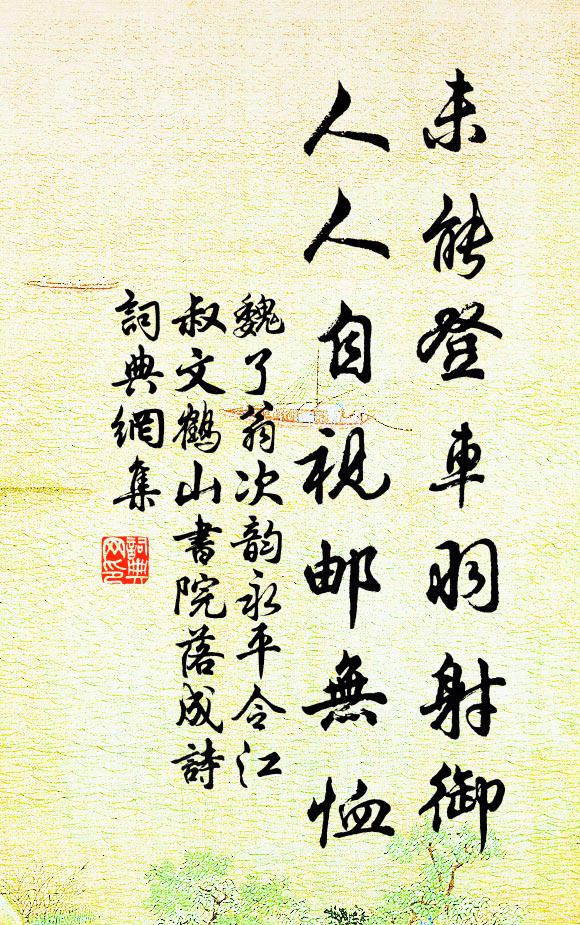 未能登車羽射御
人人自視邮無恤
魏了翁次韵永平令江
叔文鶴山書院落成詩
詞典網集
詞典
网印